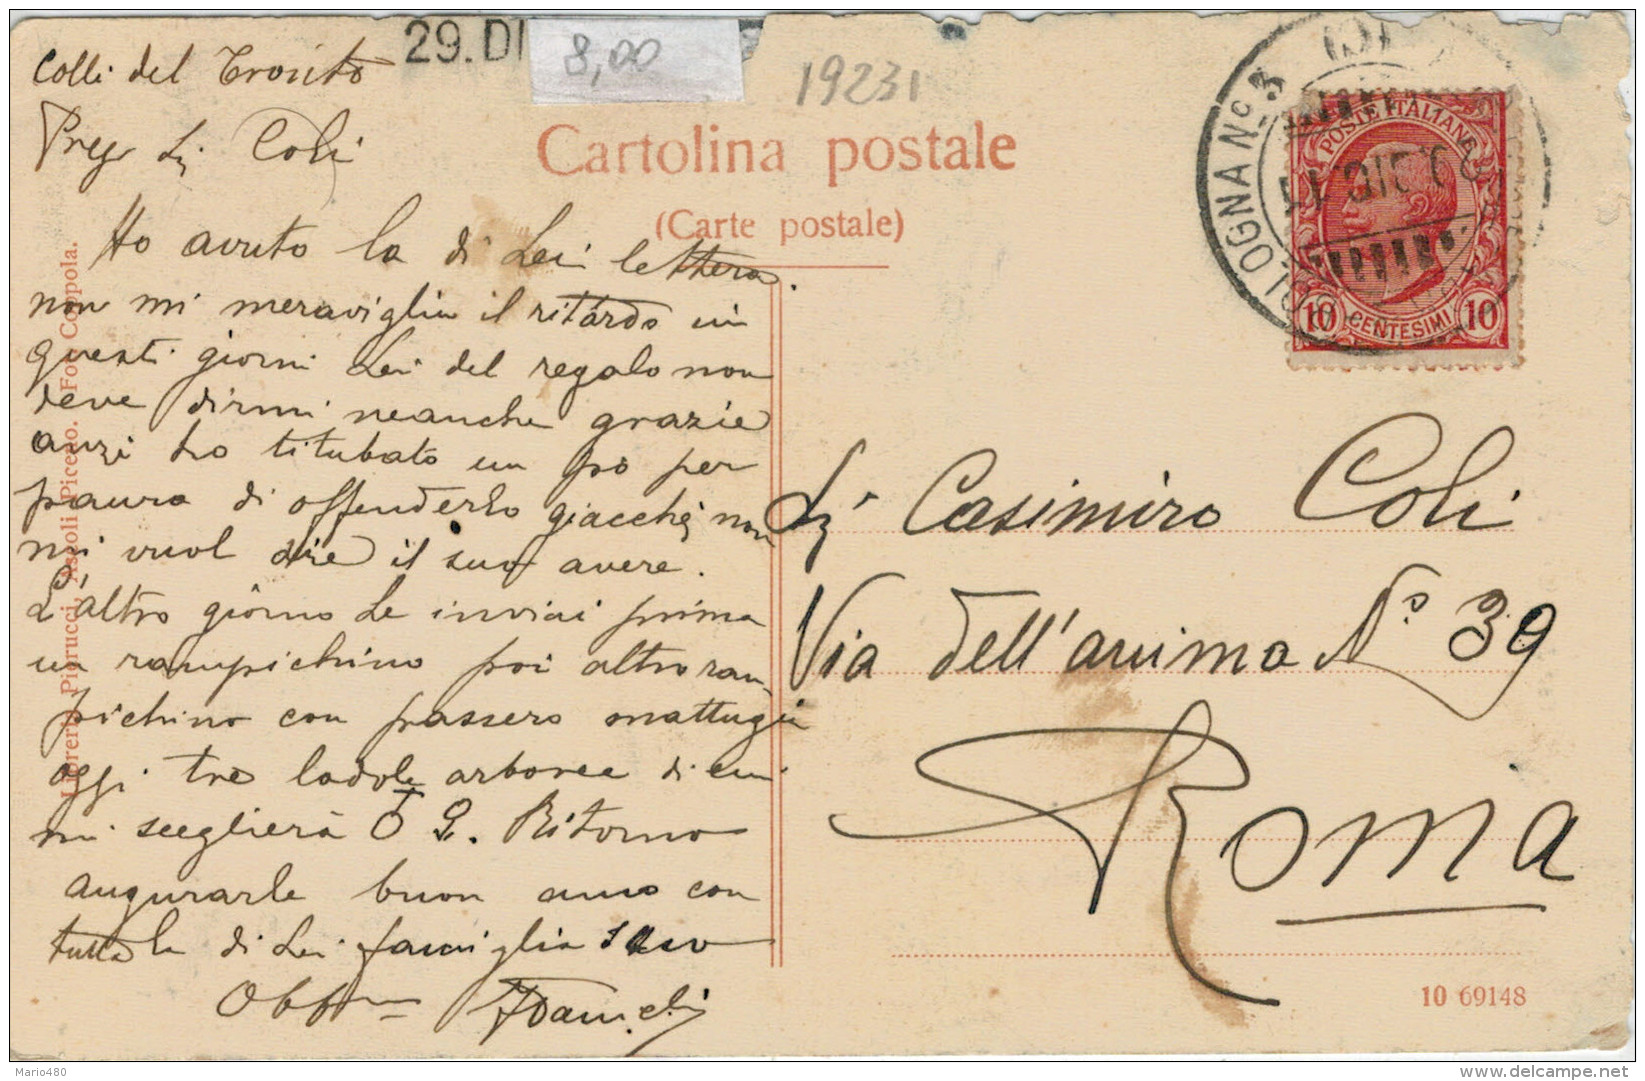 29. DI
8,00
19231
Colli del Tronto
Preg Sig Coli
Ho avuto la di Lei lettera
non mi meraviglia il ritardo in
questi giorni Lei del regalo non
deve dirmi neanche grazie
anzi ho titubato un po per
paura di offenderlo giacchè non
mi vuol dire il suo avere.
L'altro giorno Le inviai prima
un rampichino poi altro ram
pichino con passero mattugia
oggi tre lodole arboree di cui
mi sceglierà Ritorno
augurarle buon anno con
tutta la di Lei famiglia suo
Obb
Cartolina postale
(Carte postale)
BOLOGNA N° 3
POSTE ITALIANE
10 CENTESIMI 10
Sig Casimiro Coli
Via dell'anima N° 39
Roma
10 69148
Libreria Piorucci, Ascoli Piceno. Fot. Coppola.
Mario480
www.delcampe.net